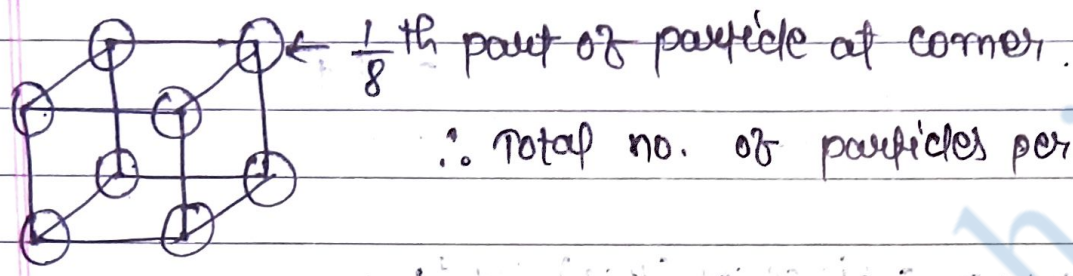 ← 1/8 th part of particle at corner.
∴ Total no. of particles per